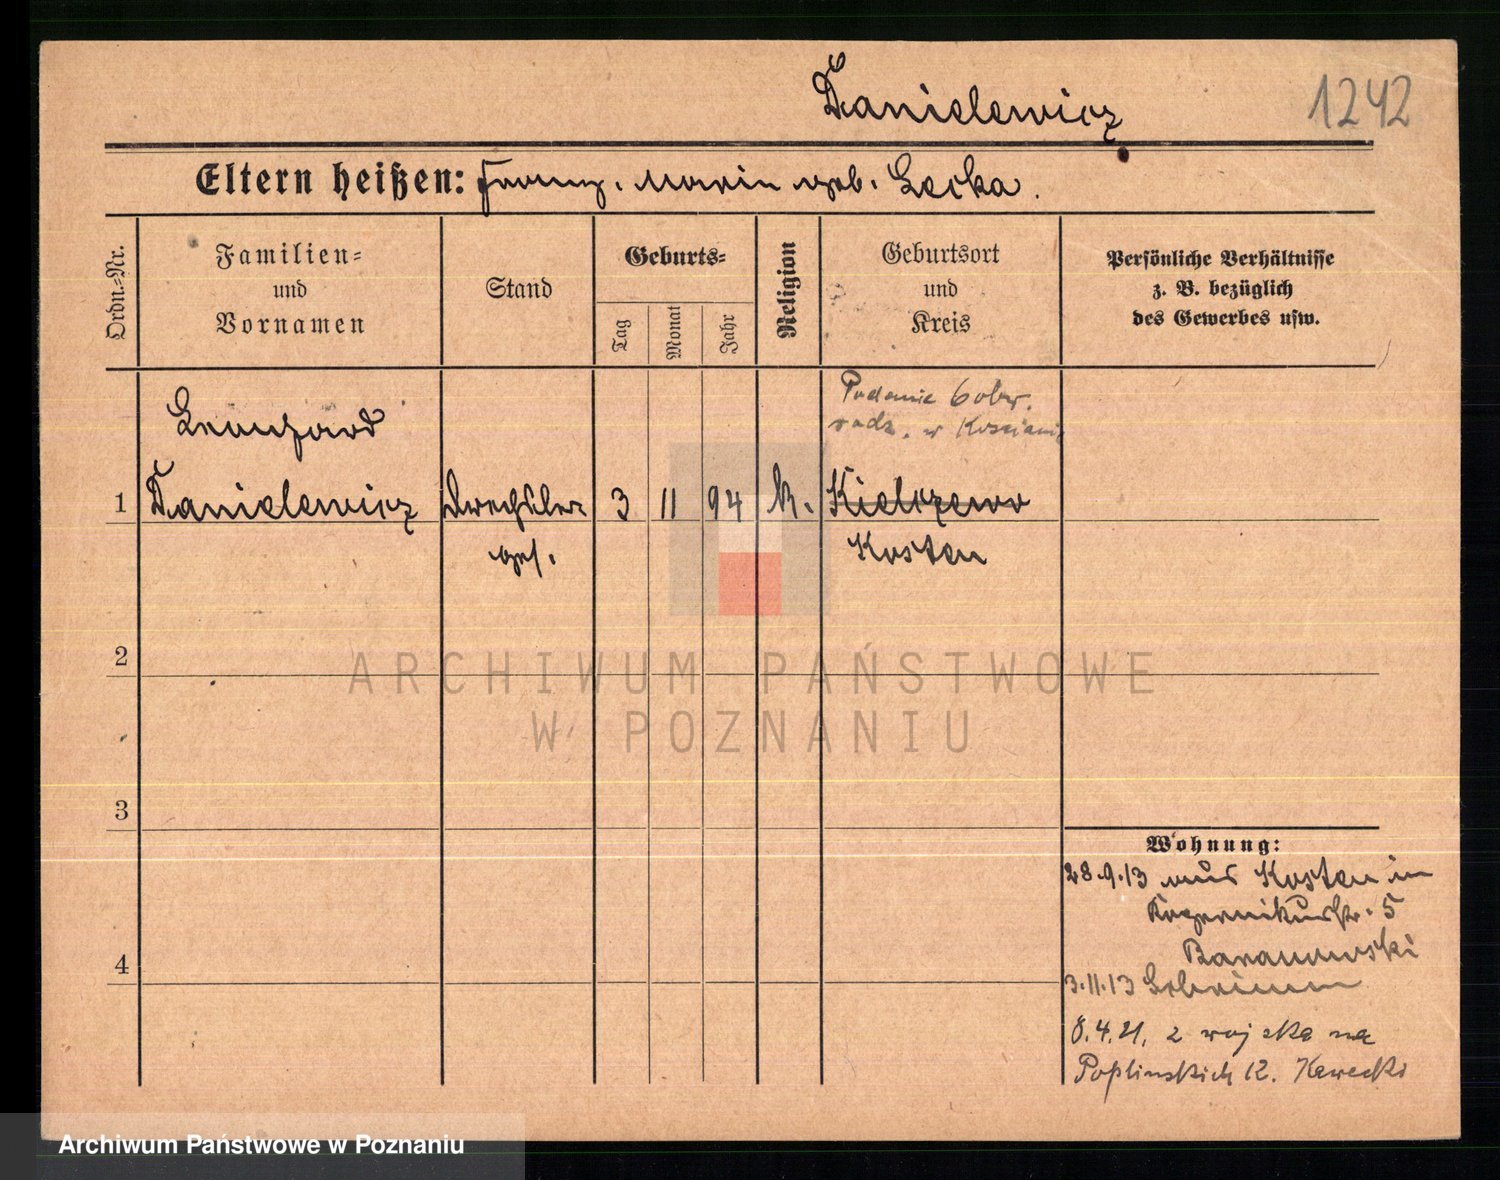 Danielewicz
1242
Eltern heißen: Franz. Maria geb. Lecka.
Ordn.=Nr.
Familien=
und
Vornamen
Stand
Geburts=
Tag
Monat
Jahr
Religion
Geburtsort
und
Kreis
Persönliche Verhältnisse
z. B. bezüglich
des Gewerbes usw.
Podanie 6 obw.
rodz. w Koscianie
Leonhard
1 Danielewicz Drechsler 3 11 94 k. Kielczewo
ges. Kosten
2
3
4
Wohnung:
28.9.13 aus Kosten in
Kopernikusstr. 5
Baranowski
3.11.13
8.4.21. z wojska na
Poplinskich 12. Kawecki
ARCHIWUM PAŃSTWOWE
W POZNANIU
Archiwum Państwowe w Poznaniu